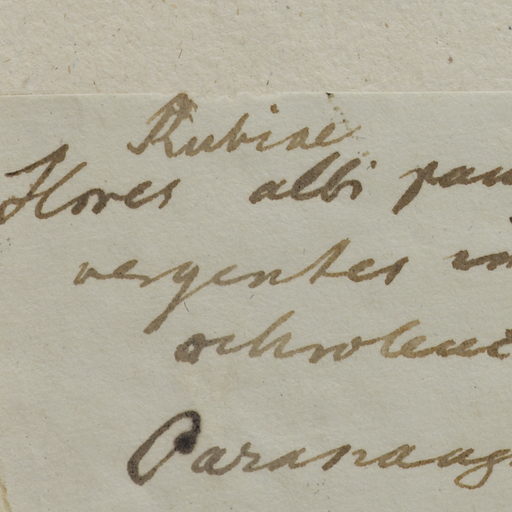 Rubiae
Flores albi pau
vergentes in
ochroleuc
Paranag